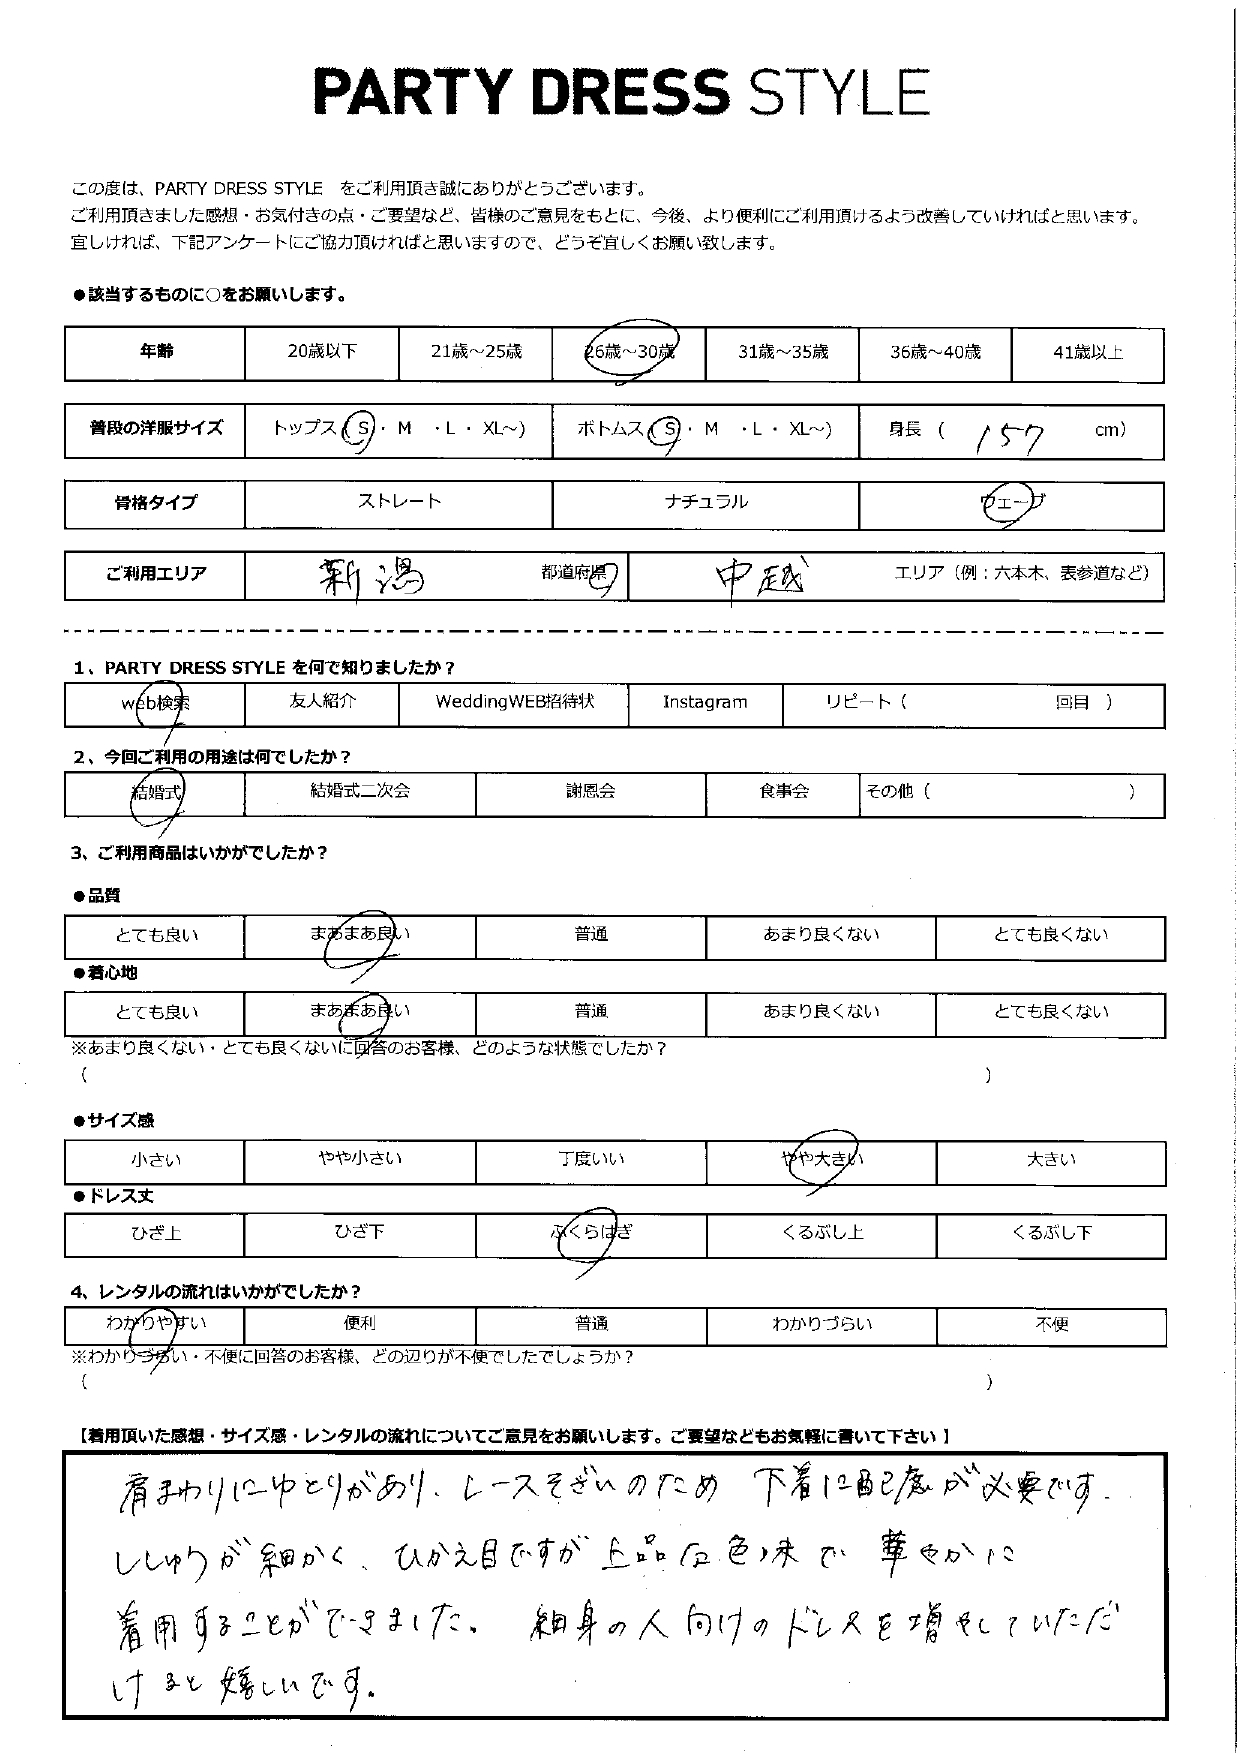 PARTY DRESS STYLE
この度は、PARTY DRESS STYLE をご利用頂き誠にありがとうございます。
ご利用頂きました感想・お気付きの点・ご要望など、皆様のご意見をもとに、今後、より便利にご利用頂けるよう改善していければと思います。
宜しければ、下記アンケートにご協力頂ければと思いますので、どうぞ宜しくお願い致します。
●該当するものに○をお願いします。
年齢 20歳以下 21歳～25歳 26歳～30歳 31歳～35歳 36歳～40歳 41歳以上
普段の洋服サイズ トップス（S・ M ・L・ XL～） ボトムス（S・ M ・L・ XL～） 身長（ 157 cm）
骨格タイプ ストレート ナチュラル ウェーブ
ご利用エリア 新潟 都道府県 中越 エリア（例：六本木、表参道など）
1、PARTY DRESS STYLE を何で知りましたか？
web検索 友人紹介 WeddingWEB招待状 Instagram リピート（ 回目 ）
2、今回ご利用の用途は何でしたか？
結婚式 結婚式二次会 謝恩会 食事会 その他（ ）
3、ご利用商品はいかがでしたか？
●品質
とても良い まあまあ良い 普通 あまり良くない とても良くない
●着心地
とても良い まあまあ良い 普通 あまり良くない とても良くない
※あまり良くない・とても良くないに回答のお客様、どのような状態でしたか？
（ ）
●サイズ感
小さい やや小さい 丁度いい やや大きい 大きい
●ドレス丈
ひざ上 ひざ下 ふくらはぎ くるぶし上 くるぶし下
4、レンタルの流れはいかがでしたか？
わかりやすい 便利 普通 わかりづらい 不便
※わかりづらい・不便に回答のお客様、どの辺りが不便でしたでしょうか？
（ ）
【着用頂いた感想・サイズ感・レンタルの流れについてご意見をお願いします。ご要望などもお気軽に書いて下さい】
肩まわりにゆとりがあり、レースそざいのため 下着に配慮が必要です。
ししゅうが細かく、ひかえ目ですが上品な色味で 華やかに
着用することができました。 細身の人向けのドレスを増やしていただ
けると嬉しいです。